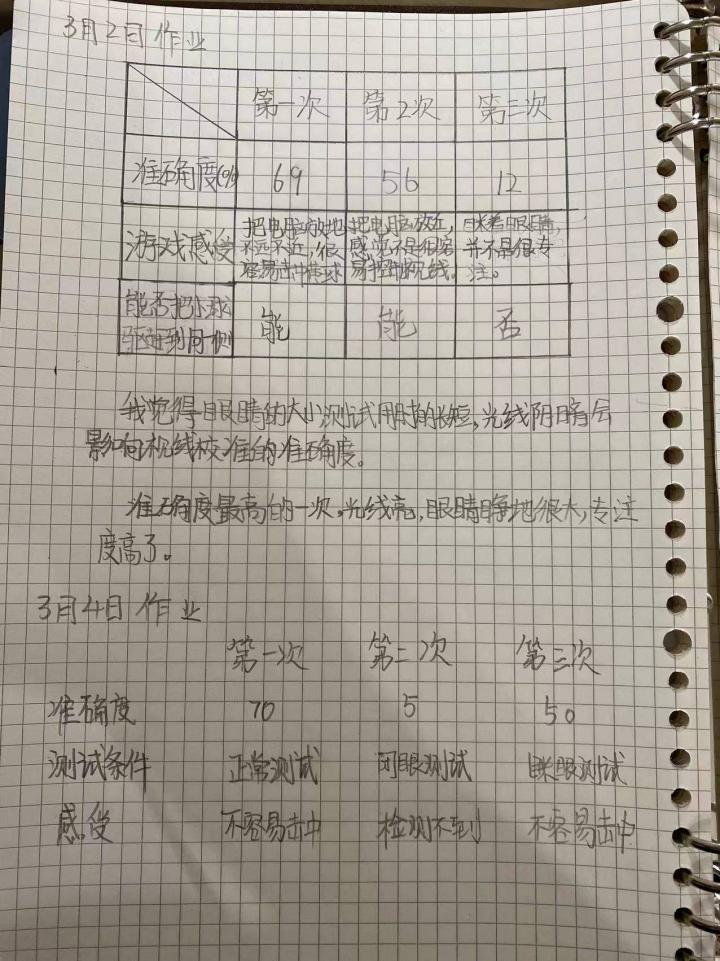 3月2日作业
第一次 第2次 第三次
准确度(%) 69 56 12
游戏感受 把电脑放地 把电脑放近, 眯着眼睛,
不远不近,很 感觉不是很容 并不是很专
容易击中棒球 易控制视线。 注。
能否把小球 能 能 否
驱赶到同侧
我觉得眼睛的大小测试用时的长短,光线阴暗会
影响视线校准的准确度。
准确度最高的一次,光线亮,眼睛睁地很大,专注
度高了。
3月4日作业
第一次 第二次 第三次
准确度 70 5 50
测试条件 正常测试 闭眼测试 眯眼测试
感受 不容易击中 检测不到 不容易击中